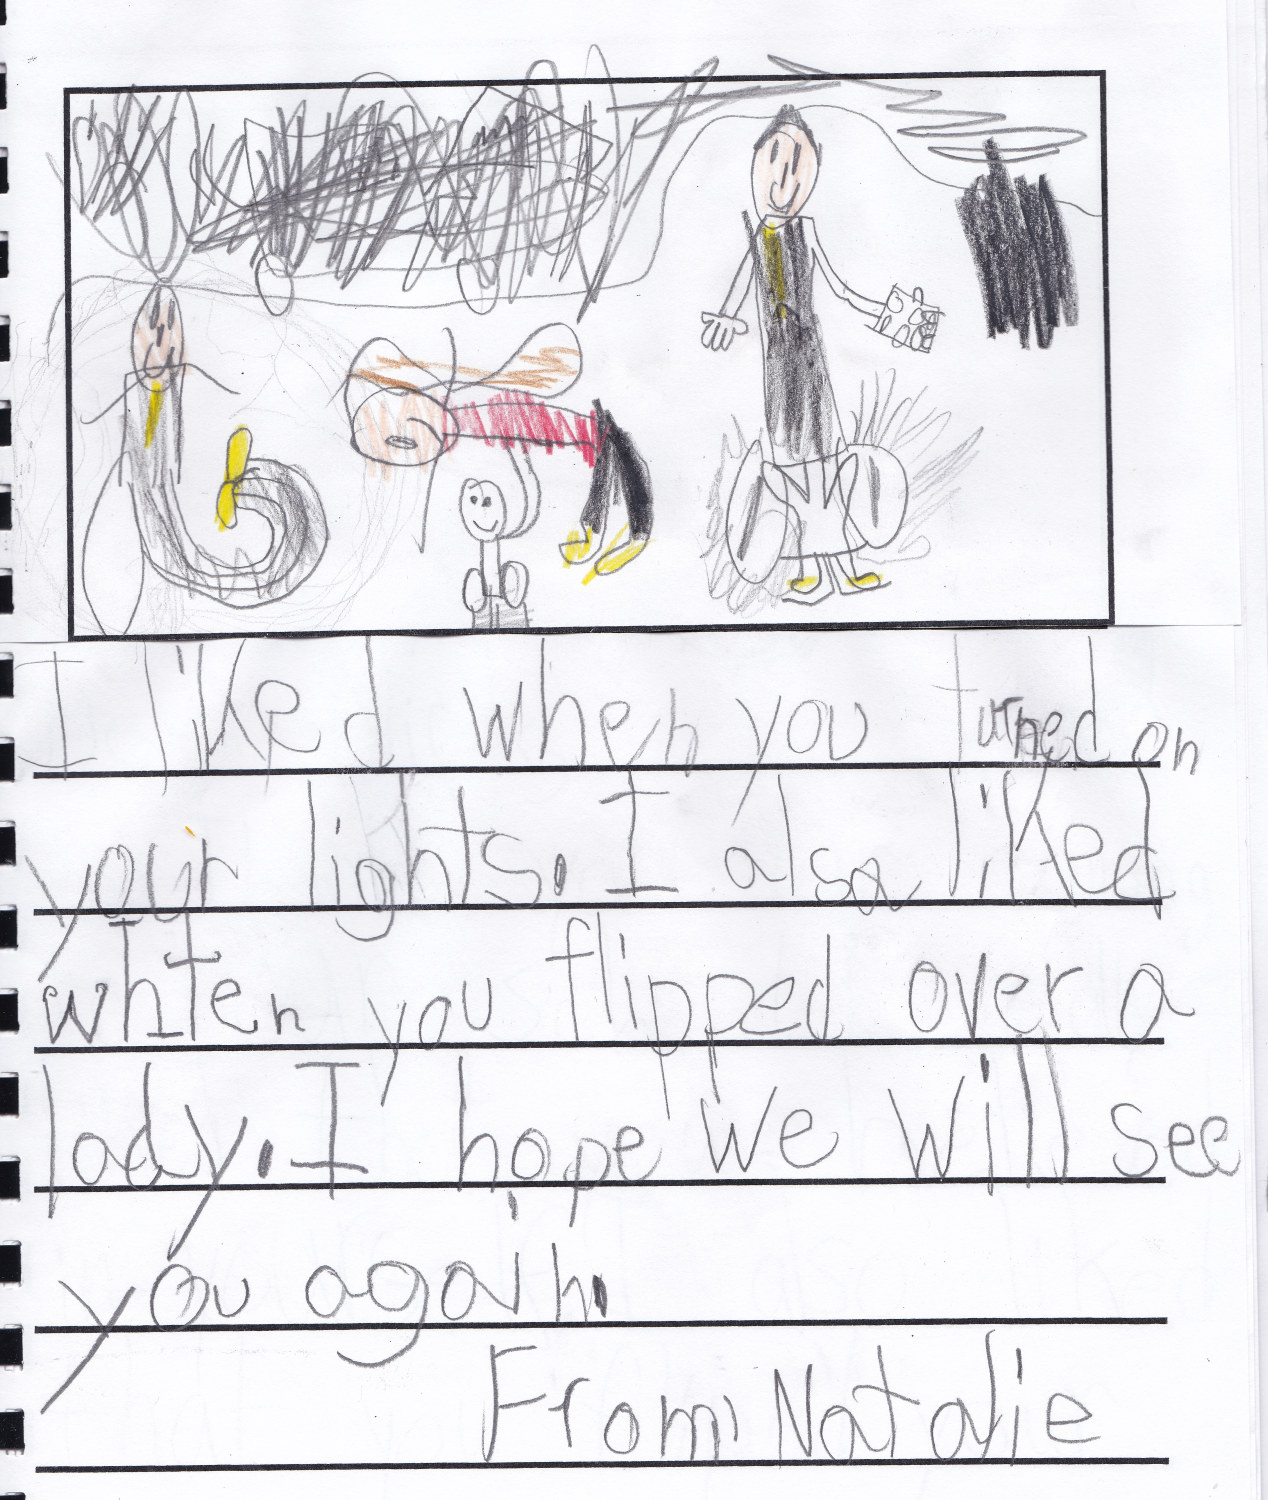 I liked when you turned on
your lights. I also liked
whten you flipped over a
lady. I hope we will see
you again.
From Natalie